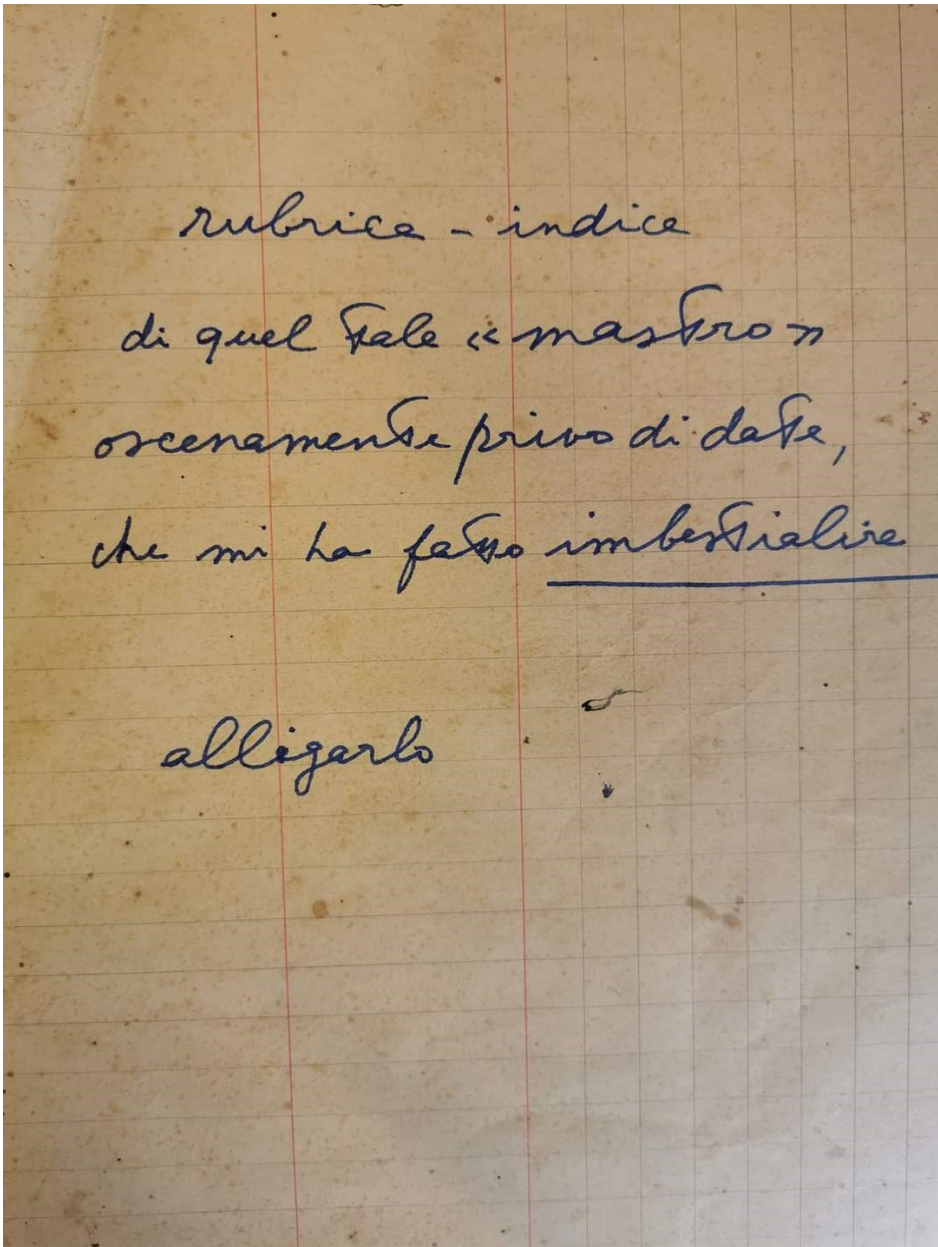 rubrica - indice
di quel tale «mastro»
oscenamente privo di date,
che mi ha fatto imbestialire
alligarlo